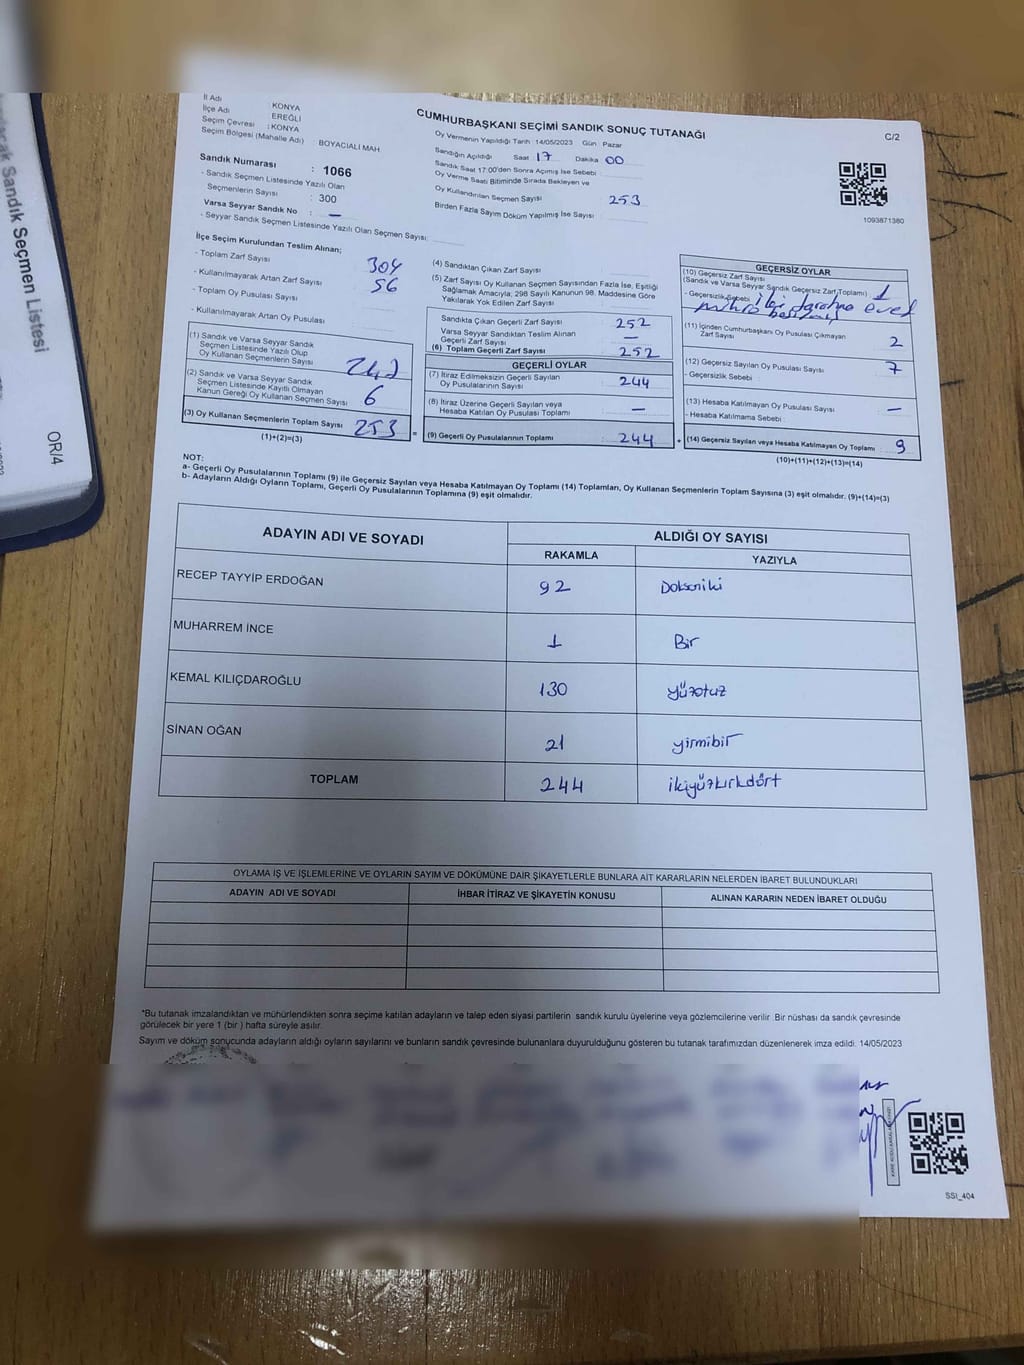 OR/4
İl Adı : KONYA
İlçe Adı : EREĞLİ
Seçim Çevresi : KONYA
Seçim Bölgesi (Mahalle Adı) : BOYACIALİ MAH
CUMHURBAŞKANI SEÇİMİ SANDIK SONUÇ TUTANAĞI
C/2
Oy Vermenin Yapıldığı Tarih : 14/05/2023 Gün : Pazar
Sandığın Açıldığı Saat 17 Dakika 00
Sandık Saat 17:00'den Sonra Açılmış İse Sebebi
Oy Verme Saati Bitiminde Sırada Bekleyen ve
Oy Kullandırılan Seçmen Sayısı 253
Birden Fazla Sayım Döküm Yapılmış İse Sayısı :
1093871380
Sandık Numarası : 1066
- Sandık Seçmen Listesinde Yazılı Olan
Seçmenlerin Sayısı : 300
Varsa Seyyar Sandık No : —
- Seyyar Sandık Seçmen Listesinde Yazılı Olan Seçmen Sayısı:
İlçe Seçim Kurulundan Teslim Alınan;
- Toplam Zarf Sayısı 304
- Kullanılmayarak Artan Zarf Sayısı 56
- Toplam Oy Pusulası Sayısı
- Kullanılmayarak Artan Oy Pusulası
(1) Sandık ve Varsa Seyyar Sandık
Seçmen Listesinde Yazılı Olup
Oy Kullanan Seçmenlerin Sayısı
(2) Sandık ve Varsa Seyyar Sandık
Seçmen Listesinde Kayıtlı Olmayan
Kanun Gereği Oy Kullanan Seçmen Sayısı 6
(3) Oy Kullanan Seçmenlerin Toplam Sayısı 253
(1)+(2)=(3)
(4) Sandıktan Çıkan Zarf Sayısı
(5) Zarf Sayısı Oy Kullanan Seçmen Sayısından Fazla İse, Eşitliği
Sağlamak Amacıyla; 298 Sayılı Kanunun 98. Maddesine Göre
Yakılarak Yok Edilen Zarf Sayısı
Sandıkta Çıkan Geçerli Zarf Sayısı : 252
Varsa Seyyar Sandıktan Teslim Alınan
Geçerli Zarf Sayısı : —
(6) Toplam Geçerli Zarf Sayısı : 252
GEÇERLİ OYLAR
(7) İtiraz Edilmeksizin Geçerli Sayılan
Oy Pusulalarının Sayısı : 244
(8) İtiraz Üzerine Geçerli Sayılan veya
Hesaba Katılan Oy Pusulası Toplamı : —
(9) Geçerli Oy Pusulalarının Toplamı : 244
GEÇERSİZ OYLAR
(10) Geçersiz Zarf Sayısı
(Sandık ve Varsa Seyyar Sandık Geçersiz Zarf Toplamı) : 1
- Geçersizlik Sebebi : iki tarafına evet
mührü basılmış
(11) İçinden Cumhurbaşkanı Oy Pusulası Çıkmayan
Zarf Sayısı 2
(12) Geçersiz Sayılan Oy Pusulası Sayısı : 7
- Geçersizlik Sebebi :
(13) Hesaba Katılmayan Oy Pusulası Sayısı : —
- Hesaba Katılmama Sebebi :
(14) Geçersiz Sayılan veya Hesaba Katılmayan Oy Toplamı : 9
(10)+(11)+(12)+(13)=(14)
NOT:
a- Geçerli Oy Pusulalarının Toplamı (9) ile Geçersiz Sayılan veya Hesaba Katılmayan Oy Toplamı (14) Toplamları, Oy Kullanan Seçmenlerin Toplam Sayısına (3) eşit olmalıdır. (9)+(14)=(3)
b- Adayların Aldığı Oyların Toplamı, Geçerli Oy Pusulalarının Toplamına (9) eşit olmalıdır.
ADAYIN ADI VE SOYADI ALDIĞI OY SAYISI
RAKAMLA YAZIYLA
RECEP TAYYİP ERDOĞAN 92 Doksaniki
MUHARREM İNCE 1 Bir
KEMAL KILIÇDAROĞLU 130 yüzotuz
SİNAN OĞAN 21 yirmibir
TOPLAM 244 ikiyüzkırkdört
OYLAMA İŞ VE İŞLEMLERİNE VE OYLARIN SAYIM VE DÖKÜMÜNE DAİR ŞİKAYETLERLE BUNLARA AİT KARARLARIN NELERDEN İBARET BULUNDUKLARI
ADAYIN ADI VE SOYADI İHBAR İTİRAZ VE ŞİKAYETİN KONUSU ALINAN KARARIN NEDEN İBARET OLDUĞU
*Bu tutanak imzalandıktan ve mühürlendikten sonra seçime katılan adayların ve talep eden siyasi partilerin sandık kurulu üyelerine veya gözlemcilerine verilir .Bir nüshası da sandık çevresinde
görülecek bir yere 1 (bir ) hafta süreyle asılır.
Sayım ve döküm sonucunda adayların aldığı oyların sayılarını ve bunların sandık çevresinde bulunanlara duyurulduğunu gösteren bu tutanak tarafımızdan düzenlenerek imza edildi. 14/05/2023
SSI_404